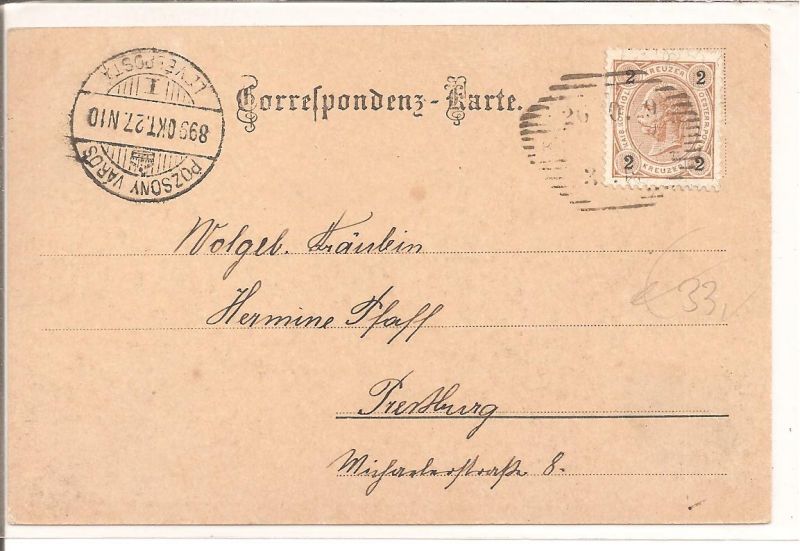 LEVÉLPOSTA
I
899 OKT. 27. N10
POZSONY VÁROS
Correspondenz-Karte.
26
2 KREUZER 2
2 KREUZER 2
Wolgeb. Fräulein
Hermine Pfaff
Pressburg
Michaelerstraße 8.
33